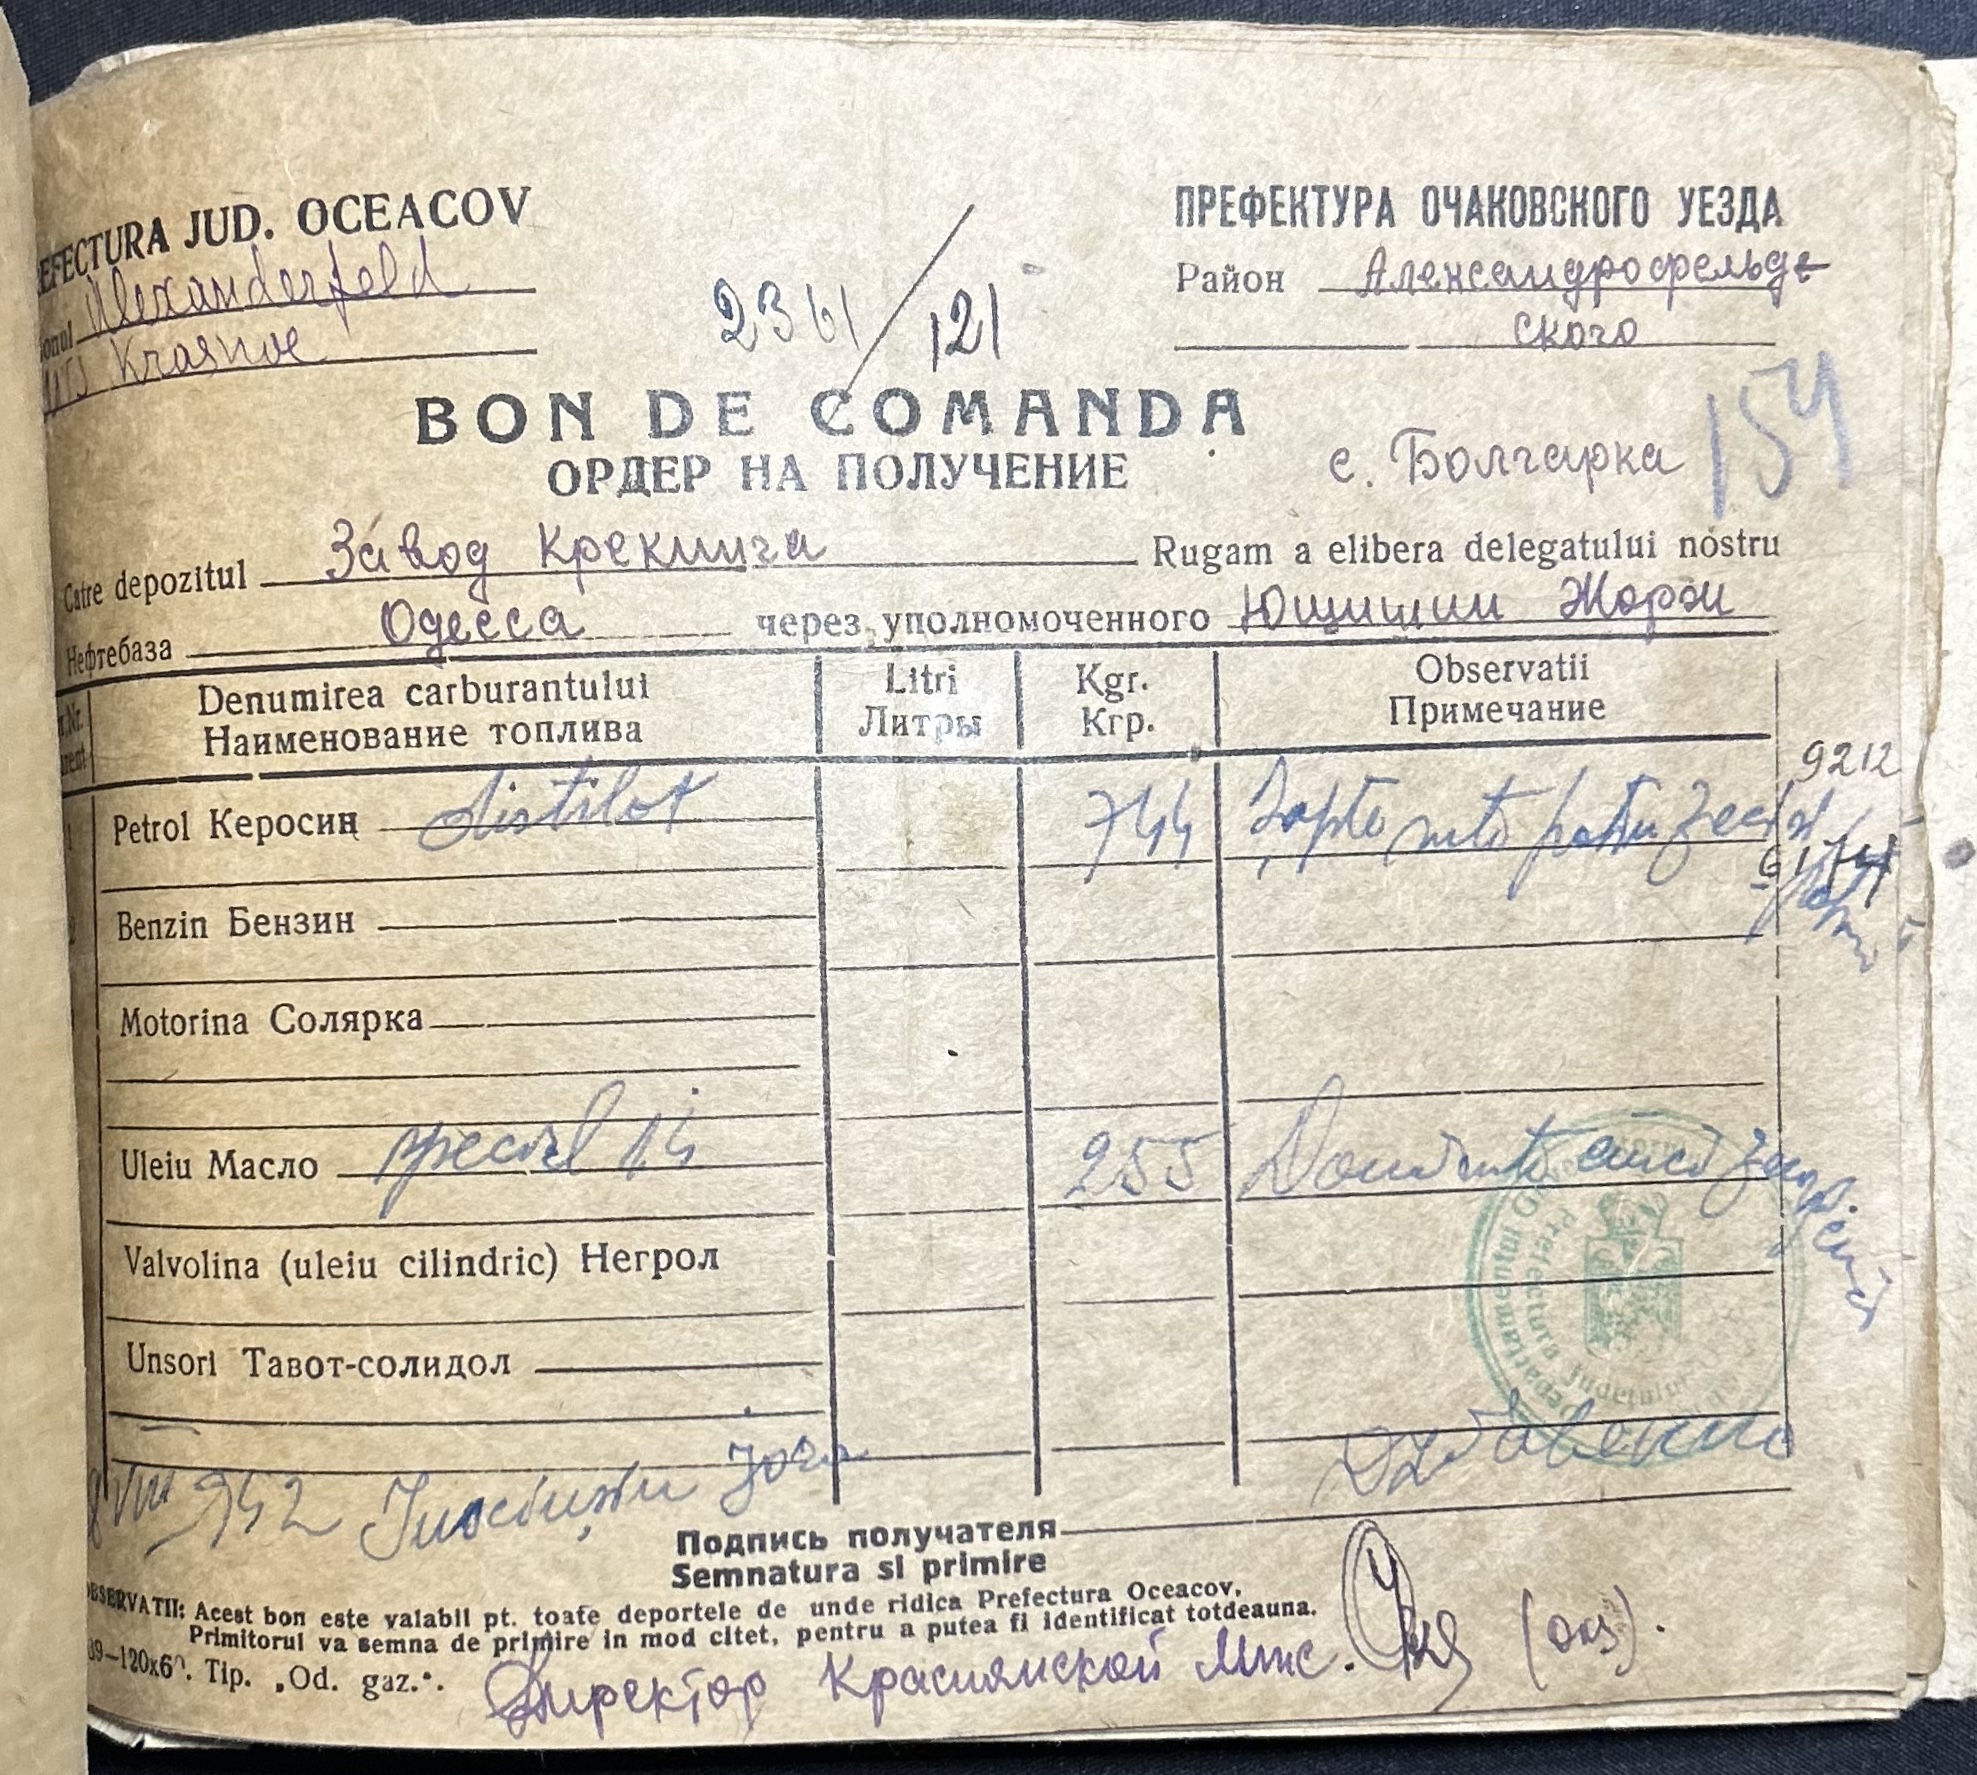 EFECTURA JUD. OCEACOV
Alexanderfeld
MTS Krasnoe
2361/121
ПРЕФЕКТУРА ОЧАКОВСКОГО УЕЗДА
Район Александрофельде
ского
154
BON DE COMANDA
ОРДЕР НА ПОЛУЧЕНИЕ
с. Болгарка
Catre depozitul Завод Крекинга Rugam a elibera delegatului nostru
Нефтебаза Одесса через уполномоченного Ющишин Жорж
Denumirea carburantului Litri Kgr. Observatii
Наименование топлива Литры Кгр. Примечание
9212
Petrol Керосин distilat 744 Șapte sute patru zeci și
patru
Benzin Бензин
Motorina Солярка
Uleiu Масло special 14 255 Două sute cinci zeci și
cinci
Valvolina (uleiu cilindric) Негрол
Unsori Тавот-солидол
Prefectura Judetului
VIII 942
Подпись получателя
Semnatura si primire
OBSERVATII: Acest bon este valabil pt. toate deportele de unde ridica Prefectura Oceacov.
Primitorul va semna de primire in mod citet, pentru a putea fi identificat totdeauna.
39—120x60. Tip. „Od. gaz.“.
Директор Краснянской Мтс.